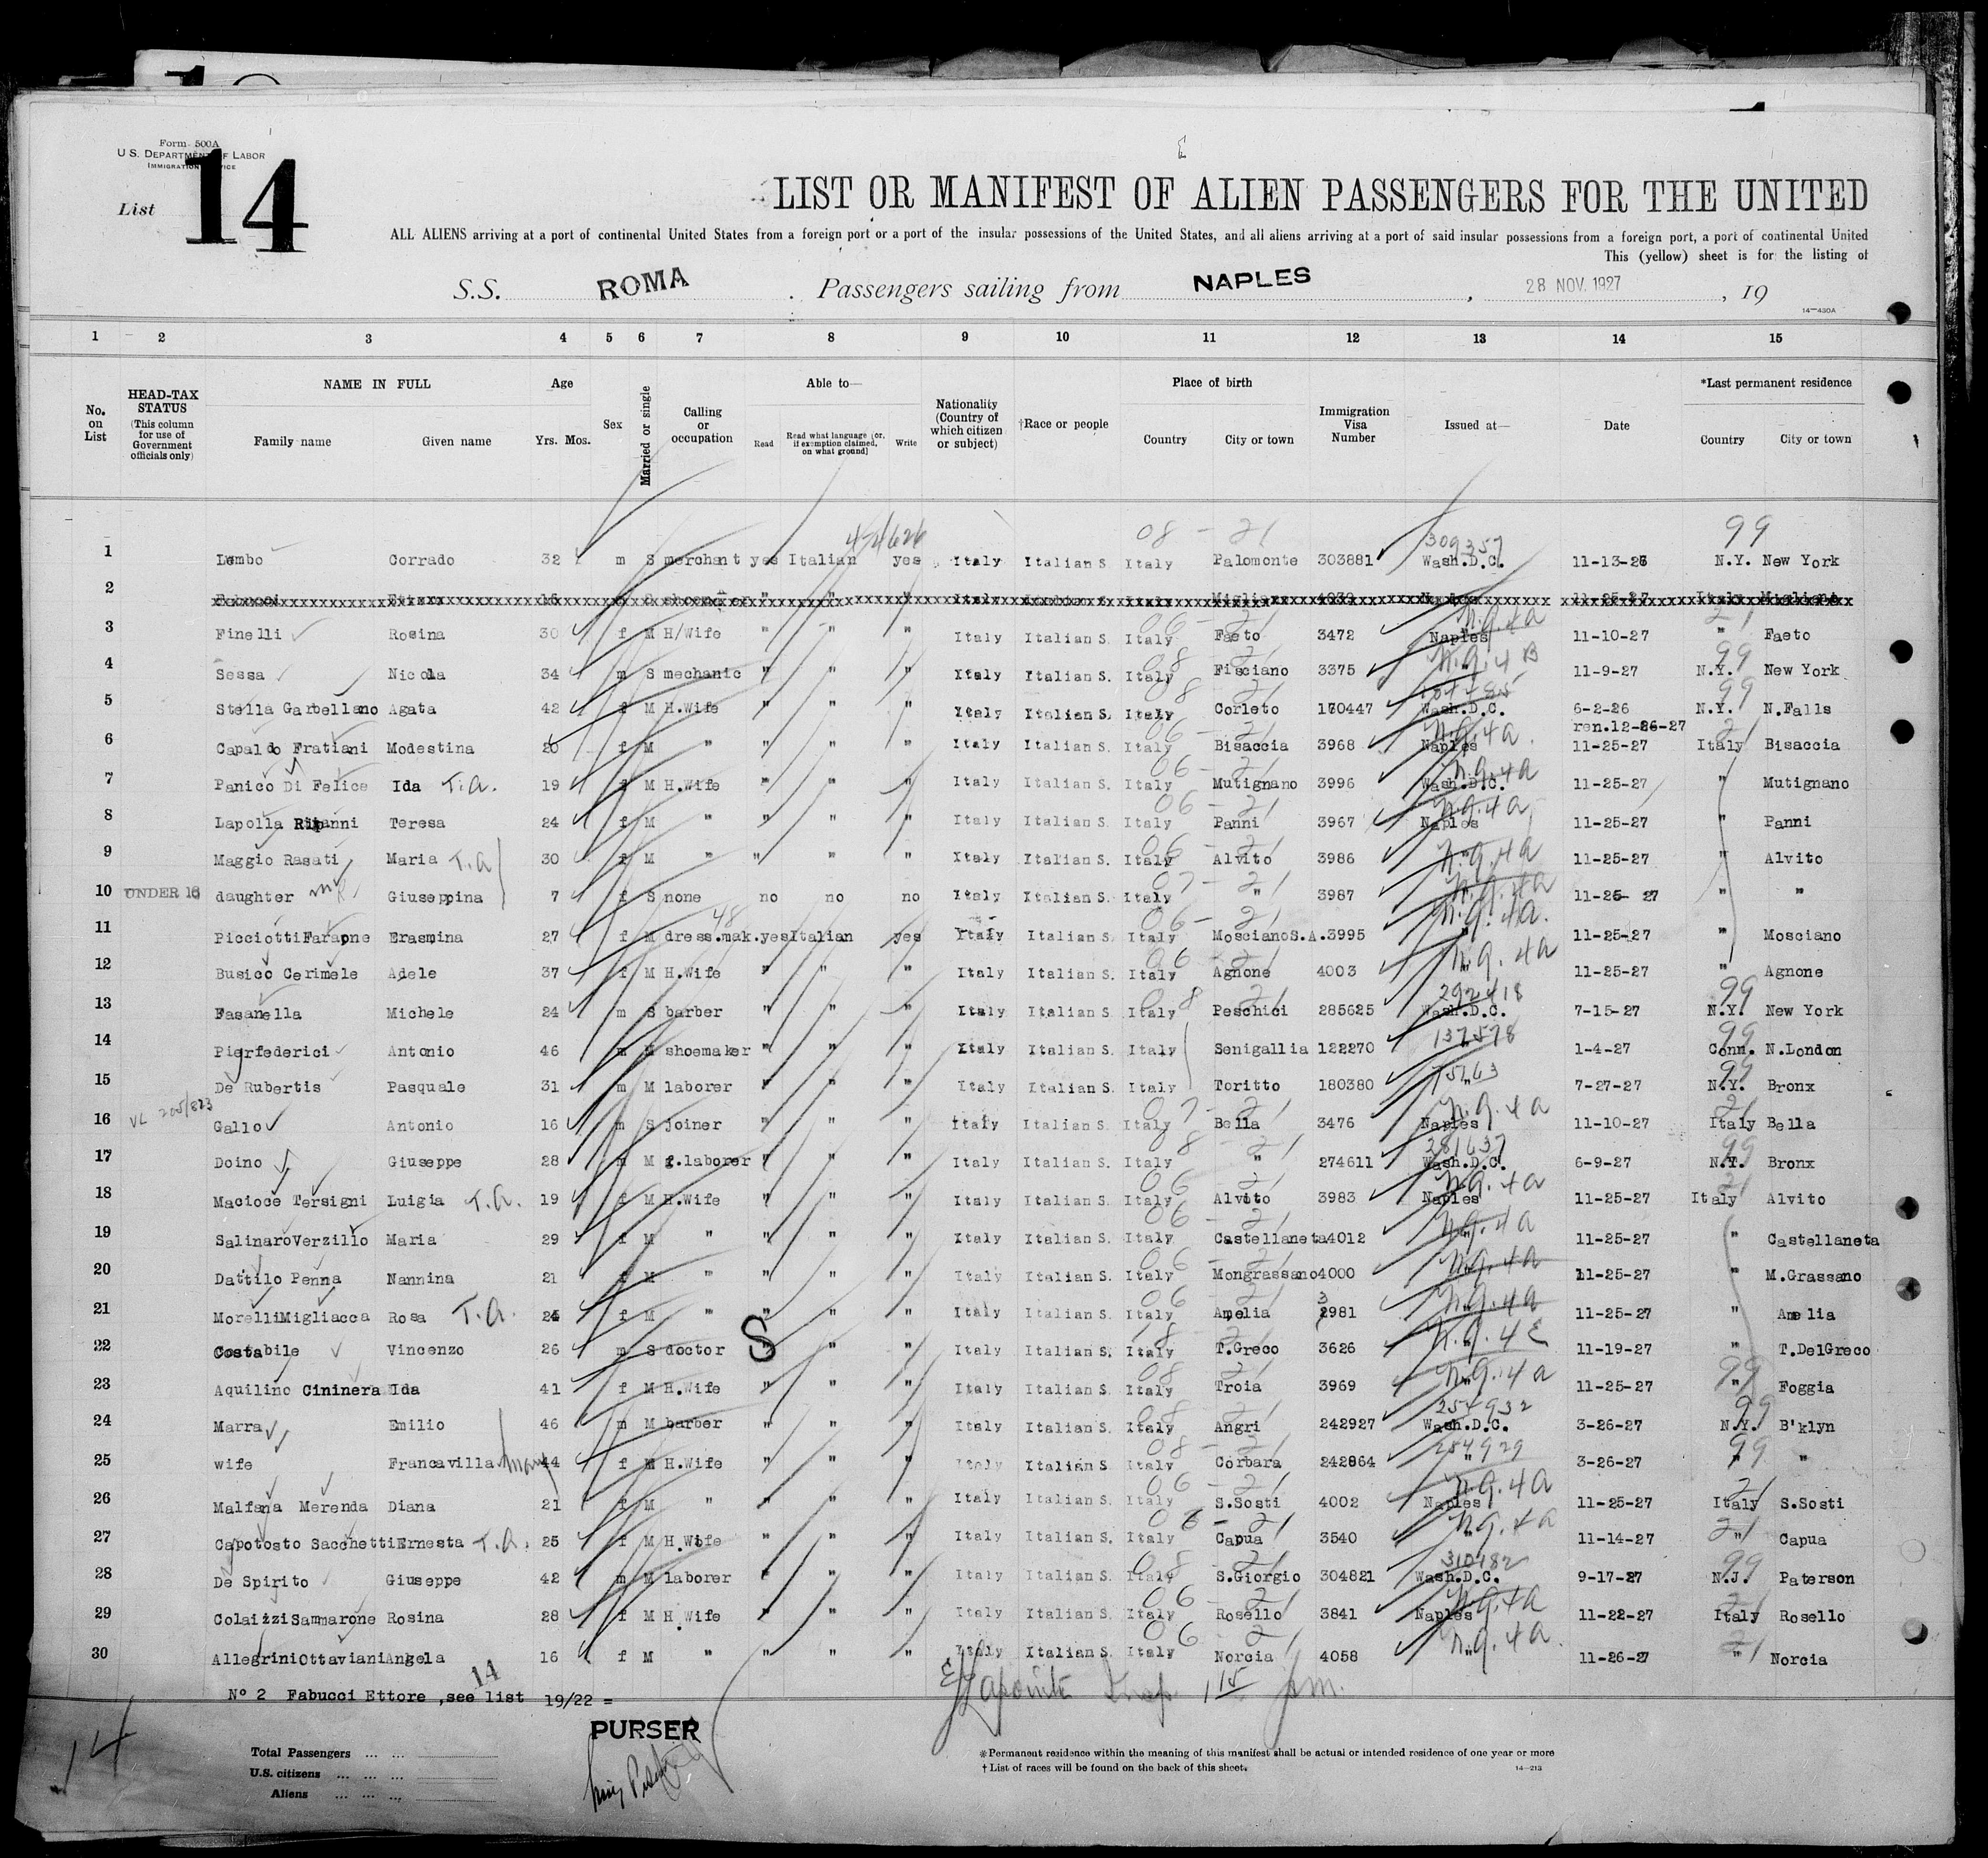 Form 500A
U. S. DEPARTMENT OF LABOR
IMMIGRATION SERVICE
List 14
LIST OR MANIFEST OF ALIEN PASSENGERS FOR THE UNITED
ALL ALIENS arriving at a port of continental United States from a foreign port or a port of the insular possessions of the United States, and all aliens arriving at a port of said insular possessions from a foreign port, a port of continental United
This (yellow) sheet is for the listing of
S.S. ROMA . Passengers sailing from NAPLES , 28 NOV. 1927 , 19
14—430A
1 2 3 4 5 6 7 8 9 10 11 12 13 14 15
No. on List
HEAD-TAX STATUS (This column for use of Government officials only)
NAME IN FULL Family name Given name
Age Yrs. Mos.
Sex
Married or single
Calling or occupation
Able to— Read Read what language [or, if exemption claimed, on what ground] Write
Nationality (Country of which citizen or subject)
†Race or people
Place of birth Country City or town
Immigration Visa Number
Issued at—
Date
*Last permanent residence Country City or town
08 - 21 309357 99
1 Lembo Corrado 32 m S merchant yes Italian yes Italy Italian S. Italy Palomonte 303881 Wash.D.C. 11-13-26 N.Y. New York
2
06 - 21 n.q.4a 21
3 Finelli Rosina 30 f M H/Wife " " " Italy Italian S. Italy Faeto 3472 Naples 11-10-27 " Faeto
08 - 21 n.q.4B 99
4 Sessa Nicola 34 m S mechanic " " " Italy Italian S. Italy Fisciano 3375 " 11-9-27 N.Y. New York
08 - 21 99
5 Stella Garbellano Agata 42 f M H.Wife " " " Italy Italian S. Italy Corleto 170447 Wash.D.C. 6-2-26 N.Y. N.Falls
ren.12-26-27
06 - 21 n.q.4a 21
6 Capaldo Fratiani Modestina 20 f M " " " " Italy Italian S. Italy Bisaccia 3968 Naples 11-25-27 Italy Bisaccia
06 - 21 n.q.4a
7 Panico Di Felice Ida T.a. 19 f M H.Wife " " " Italy Italian S. Italy Mutignano 3996 Wash.D.C. 11-25-27 " Mutignano
06 - 21 n.q.4a
8 Lapolla Ripanni Teresa 24 f M " " " " Italy Italian S. Italy Panni 3967 Naples 11-25-27 " Panni
06 - 21 n.q.4a
9 Maggio Rasati Maria T.a 30 f M " " " " Italy Italian S. Italy Alvito 3986 " 11-25-27 " Alvito
07 - 21 n.q.4a
10 UNDER 16 daughter Giuseppina 7 f S none no no no Italy Italian S. Italy " 3987 " 11-25- 27 " "
48 06 - 21 n.q.4a.
11 Picciotti Faraone Erasmina 27 f M dress.mak. yes Italian yes Italy Italian S. Italy Mosciano S.A. 3995 " 11-25-27 " Mosciano
06 - 21 n.q.4a
12 Busico Cerimele Adele 37 f M H.Wife " " " Italy Italian S. Italy Agnone 4003 " 11-25-27 " Agnone
08 21 292418 99
13 Fasanella Michele 24 m S barber " " " Italy Italian S. Italy Peschici 285625 Wash.D.C. 7-15-27 N.Y. New York
137578 99
14 Pierfederici Antonio 46 m M shoemaker " " " Italy Italian S. Italy Senigallia 122270 " 1-4-27 Conn. N.London
99
15 De Rubertis Pasquale 31 m M laborer " " " Italy Italian S. Italy Toritto 180380 " 7-27-27 N.Y. Bronx
VL 205/823 07 - 21 n.q.4a 21
16 Gallo Antonio 16 m S joiner " " " Italy Italian S. Italy Bella 3476 Naples 11-10-27 Italy Bella
08 - 21 281637 99
17 Doino Giuseppe 28 m M f.laborer " " " Italy Italian S. Italy " 274611 Wash.D.C. 6-9-27 N.Y. Bronx
06 - 21 n.q.4a 21
18 Macioce Tersigni Luigia T.a. 19 f M H.Wife " " " Italy Italian S. Italy Alvito 3983 Naples 11-25-27 Italy Alvito
06 - 21 n.q.4a
19 Salinaro Verzillo Maria 29 f M " " " " Italy Italian S. Italy Castellaneta 4012 " 11-25-27 " Castellaneta
06 - 21 n.q.4a
20 Dattilo Penna Nannina 21 f M " " " " Italy Italian S. Italy Mongrassano 4000 " 11-25-27 " M.Grassano
06 - 21 n.q.4a
21 Morelli Migliacca Rosa T.a. 24 f M " " " " Italy Italian S. Italy Amelia 3981 " 11-25-27 " Amelia
S 18 - 21 n.q.4E
22 Costabile Vincenzo 26 m S doctor " " " Italy Italian S. Italy T.Greco 3626 " 11-19-27 " T.DelGreco
08 21 n.q.4a 99
23 Aquilino Cininera Ida 41 f M H.Wife " " " Italy Italian S. Italy Troia 3969 " 11-25-27 " Foggia
08 - 21 254932 99
24 Marra Emilio 46 m M barber " " " Italy Italian S. Italy Angri 242927 Wash.D.C. 3-26-27 N.Y. B'klyn
08 - 21 254929 99
25 wife Francavilla Mary 44 f M H.Wife " " " Italy Italian S Italy Corbara 242864 " 3-26-27 " "
06 - 21 n.q.4a 21
26 Malfana Merenda Diana 21 f M " " " " Italy Italian S. Italy S.Sosti 4002 Naples 11-25-27 Italy S.Sosti
06 - 21 n.q.4a 21
27 Capotosto Sacchetti Ernesta T.a. 25 f M H.Wife " " " Italy Italian S. Italy Capua 3540 " 11-14-27 " Capua
08 - 21 310182 99
28 De Spirito Giuseppe 42 m M laborer " " " Italy Italian S. Italy S.Giorgio 304821 Wash.D.C. 9-17-27 N.J. Paterson
06 - 21 n.q.4a 21
29 Colaizzi Sammarone Rosina 28 f M H.Wife " " " Italy Italian S. Italy Rosello 3841 Naples 11-22-27 Italy Rosello
06 - 21 n.q.4a. 21
30 Allegrini Ottaviani Angela 16 f M " " " " Italy Italian S. Italy Norcia 4058 " 11-26-27 " Norcia
14
N° 2 Fabucci Ettore ,see list 19/22 =
1 15 pm.
PURSER
14
Total Passengers ... ...
U.S. citizens ... ... ...
Aliens ... ... ...
*Permanent residence within the meaning of this manifest shall be actual or intended residence of one year or more
† List of races will be found on the back of this sheet.
14—213